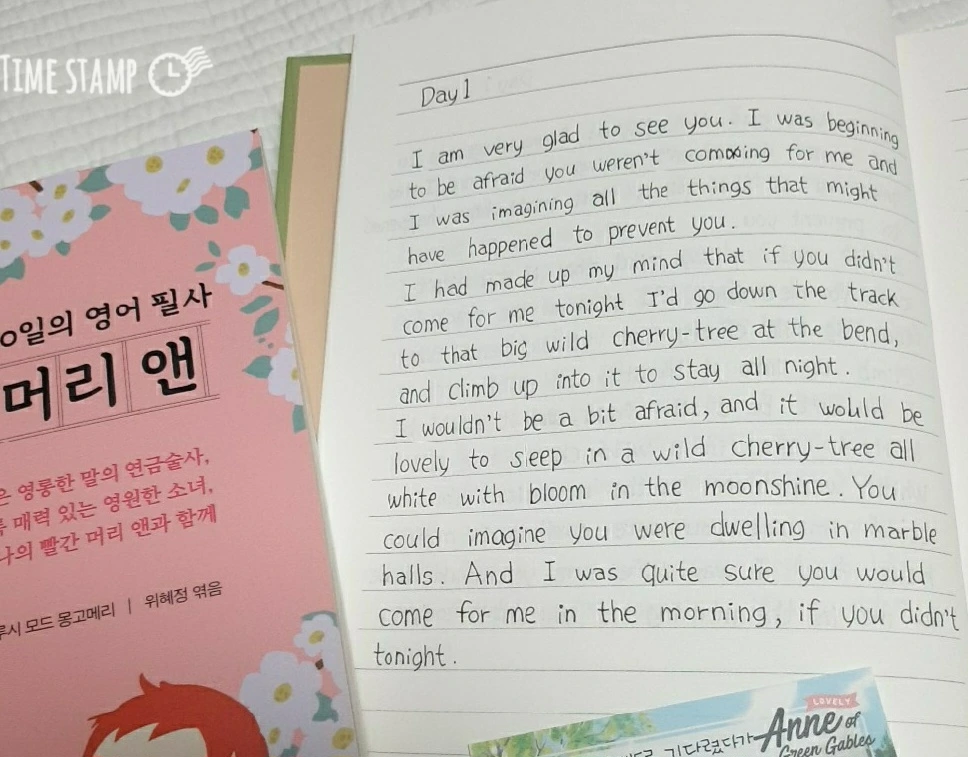 TIME STAMP
0일의 영어 필사
머리 앤
은 영롱한 말의 연금술사,
매력 있는 영원한 소녀,
나의 빨간 머리 앤과 함께
루시 모드 몽고메리 | 위혜정 엮음
Day 1
I am very glad to see you. I was beginning
to be afraid you weren't coming for me and
I was imagining all the things that might
have happened to prevent you.
I had made up my mind that if you didn't
come for me tonight I'd go down the track
to that big wild cherry-tree at the bend,
and climb up into it to stay all night.
I wouldn't be a bit afraid, and it would be
lovely to sleep in a wild cherry-tree all
white with bloom in the moonshine. You
could imagine you were dwelling in marble
halls. And I was quite sure you would
come for me in the morning, if you didn't
tonight.
LOVELY
Anne of
Green Gables
기다렸다가